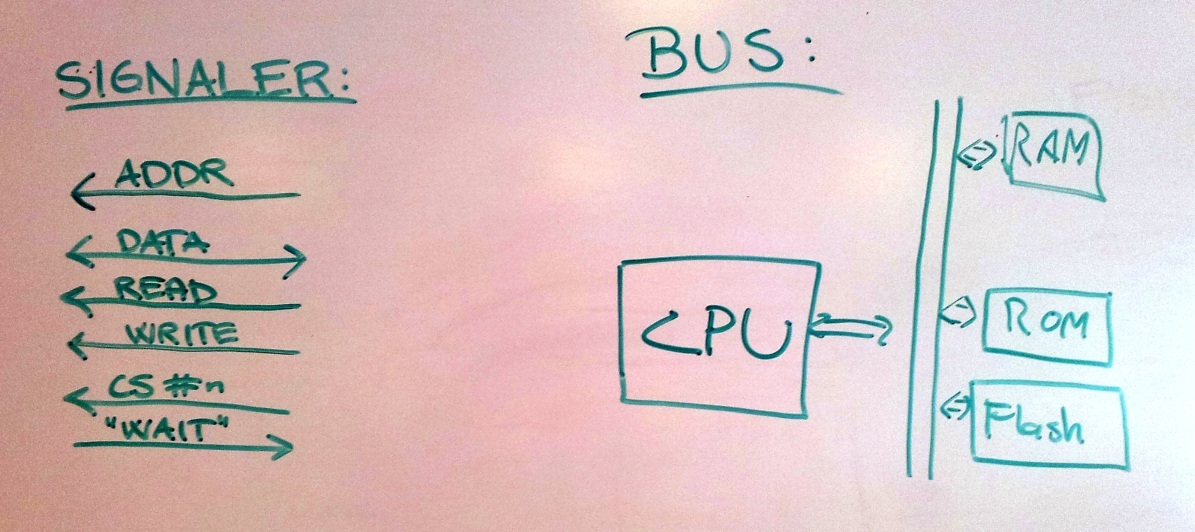 SIGNALER:
ADDR
DATA
READ
WRITE
CS #n
"WAIT"
BUS:
CPU
RAM
ROM
Flash